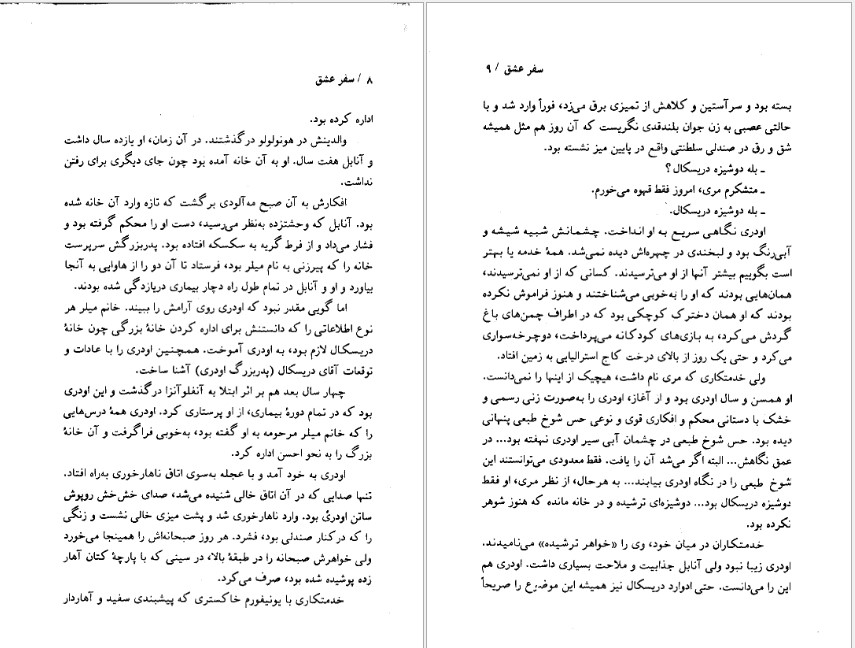 ۸ / سفر عشق
اداره کرده بود.
والدینش در هونولولو درگذشتند. در آن زمان، او یازده سال داشت
و آنابل هفت سال. او به آن خانه آمده بود چون جای دیگری برای رفتن
نداشت.
افکارش به آن صبح مه‌آلودی برگشت که تازه وارد آن خانه شده
بود. آنابل که وحشتزده به‌نظر می‌رسید، دست او را محکم گرفته بود و
فشار می‌داد و از فرط گریه به سکسکه افتاده بود. پدربزرگش سرپرست
خانه را که پیرزنی به نام میلر بود، فرستاد تا آن دو را از هاوایی به آنجا
بیاورد و او و آنابل در تمام طول راه دچار بیماری دریازدگی شده بودند.
اما گویی مقدر نبود که اودری روی آرامش را ببیند. خانم میلر هر
نوع اطلاعاتی را که دانستنش برای اداره کردن خانهٔ بزرگی چون خانهٔ
دریسکال لازم بود، به اودری آموخت. همچنین اودری را با عادات و
توقعات آقای دریسکال (پدربزرگ اودری) آشنا ساخت.
چهار سال بعد هم بر اثر ابتلا به آنفلوآنزا درگذشت و این اودری
بود که در تمام دورهٔ بیماری، از او پرستاری کرد. اودری همهٔ درس‌هایی
را که خانم میلر مرحومه به او گفته بود، به‌خوبی فراگرفت و آن خانهٔ
بزرگ را به نحو احسن اداره کرد.
اودری به خود آمد و با عجله به‌سوی اتاق ناهارخوری به‌راه افتاد.
تنها صدایی که در آن اتاق خالی شنیده می‌شد، صدای خش‌خش روپوش
ساتن اودری بود. وارد ناهارخوری شد و پشت میزی خالی نشست و زنگی
را که در کنار صندلی بود، فشرد. هر روز صبحانه‌اش را همینجا می‌خورد
ولی خواهرش صبحانه را در طبقهٔ بالا، در سینی که با پارچهٔ کتان آهار
زده پوشیده شده بود، صرف می‌کرد.
خدمتکاری با یونیفورم خاکستری که پیشبندی سفید و آهاردار
سفر عشق / ۹
بسته بود و سرآستین و کلاهش از تمیزی برق می‌زد، فوراً وارد شد و با
حالتی عصبی به زن جوان بلندقدی نگریست که آن روز هم مثل همیشه
شق و رق در صندلی سلطنتی واقع در پایین میز نشسته بود.
ـ بله دوشیزه دریسکال؟
ـ متشکرم مری، امروز فقط قهوه می‌خورم.
ـ بله دوشیزه دریسکال.
اودری نگاهی سریع به او انداخت. چشمانش شبیه شیشه و
آبی‌رنگ بود و لبخندی در چهره‌اش دیده نمی‌شد. همهٔ خدمه یا بهتر
است بگوییم بیشتر آنها از او می‌ترسیدند. کسانی که از او نمی‌ترسیدند،
همان‌هایی بودند که او را به‌خوبی می‌شناختند و هنوز فراموش نکرده
بودند که او همان دخترک کوچکی بود که در اطراف چمن‌های باغ
گردش می‌کرد، به بازی‌های کودکانه می‌پرداخت، دوچرخه‌سواری
می‌کرد و حتی یک روز از بالای درخت کاج استرالیایی به زمین افتاد.
ولی خدمتکاری که مری نام داشت، هیچیک از اینها را نمی‌دانست.
او همسن و سال اودری بود و از آغاز، اودری را به‌صورت زنی رسمی و
خشک با دستانی محکم و افکاری قوی و نوعی حس شوخ طبعی پنهانی
دیده بود. حس شوخ طبعی در چشمان آبی سیر اودری نهفته بود... در
عمق نگاهش... البته اگر می‌شد آن را یافت. فقط معدودی می‌توانستند این
شوخ طبعی را در نگاه اودری بیابند... به هرحال، از نظر مری، او فقط
دوشیزه دریسکال بود... دوشیزه‌ای ترشیده و در خانه مانده که هنوز شوهر
نکرده بود.
خدمتکاران در میان خود، وی را «خواهر ترشیده» می‌نامیدند.
اودری زیبا نبود ولی آنابل جذابیت و ملاحت بسیاری داشت. اودری هم
این را می‌دانست. حتی ادوارد دریسکال نیز همیشه این موضوع را صریحاً